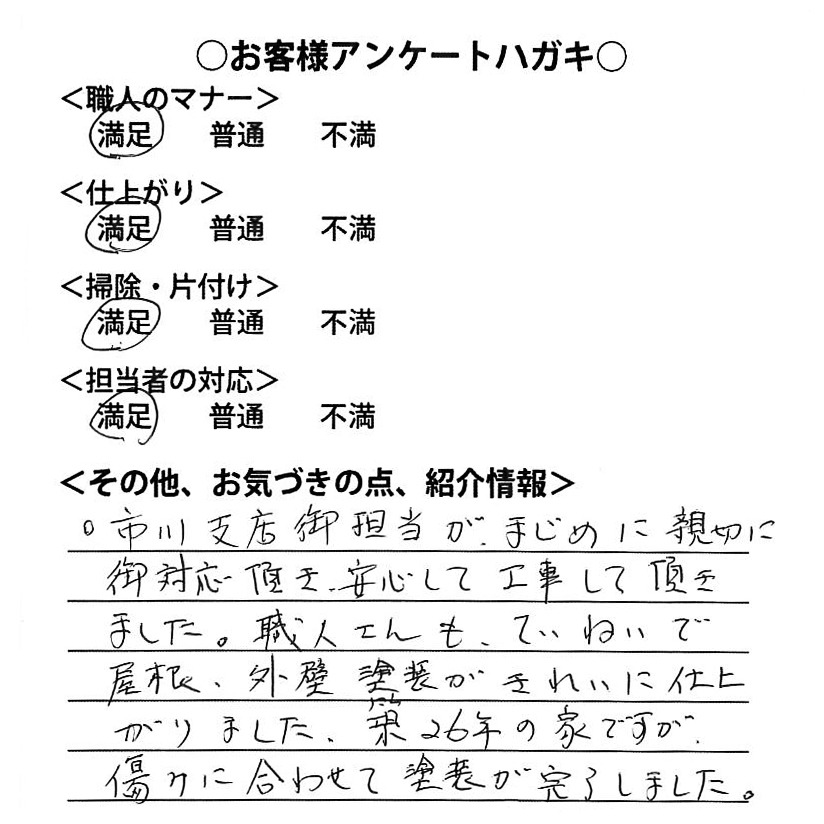 ○お客様アンケートハガキ○
＜職人のマナー＞
満足 普通 不満
＜仕上がり＞
満足 普通 不満
＜掃除・片付け＞
満足 普通 不満
＜担当者の対応＞
満足 普通 不満
＜その他、お気づきの点、紹介情報＞
○市川支店御担当が、まじめに親切に
御対応頂き、安心して工事して頂き
ました。職人さんも、ていねいで
屋根、外壁塗装がきれいに仕上
がりました、築26年の家ですが、
傷みに合わせて塗装が完了しました。